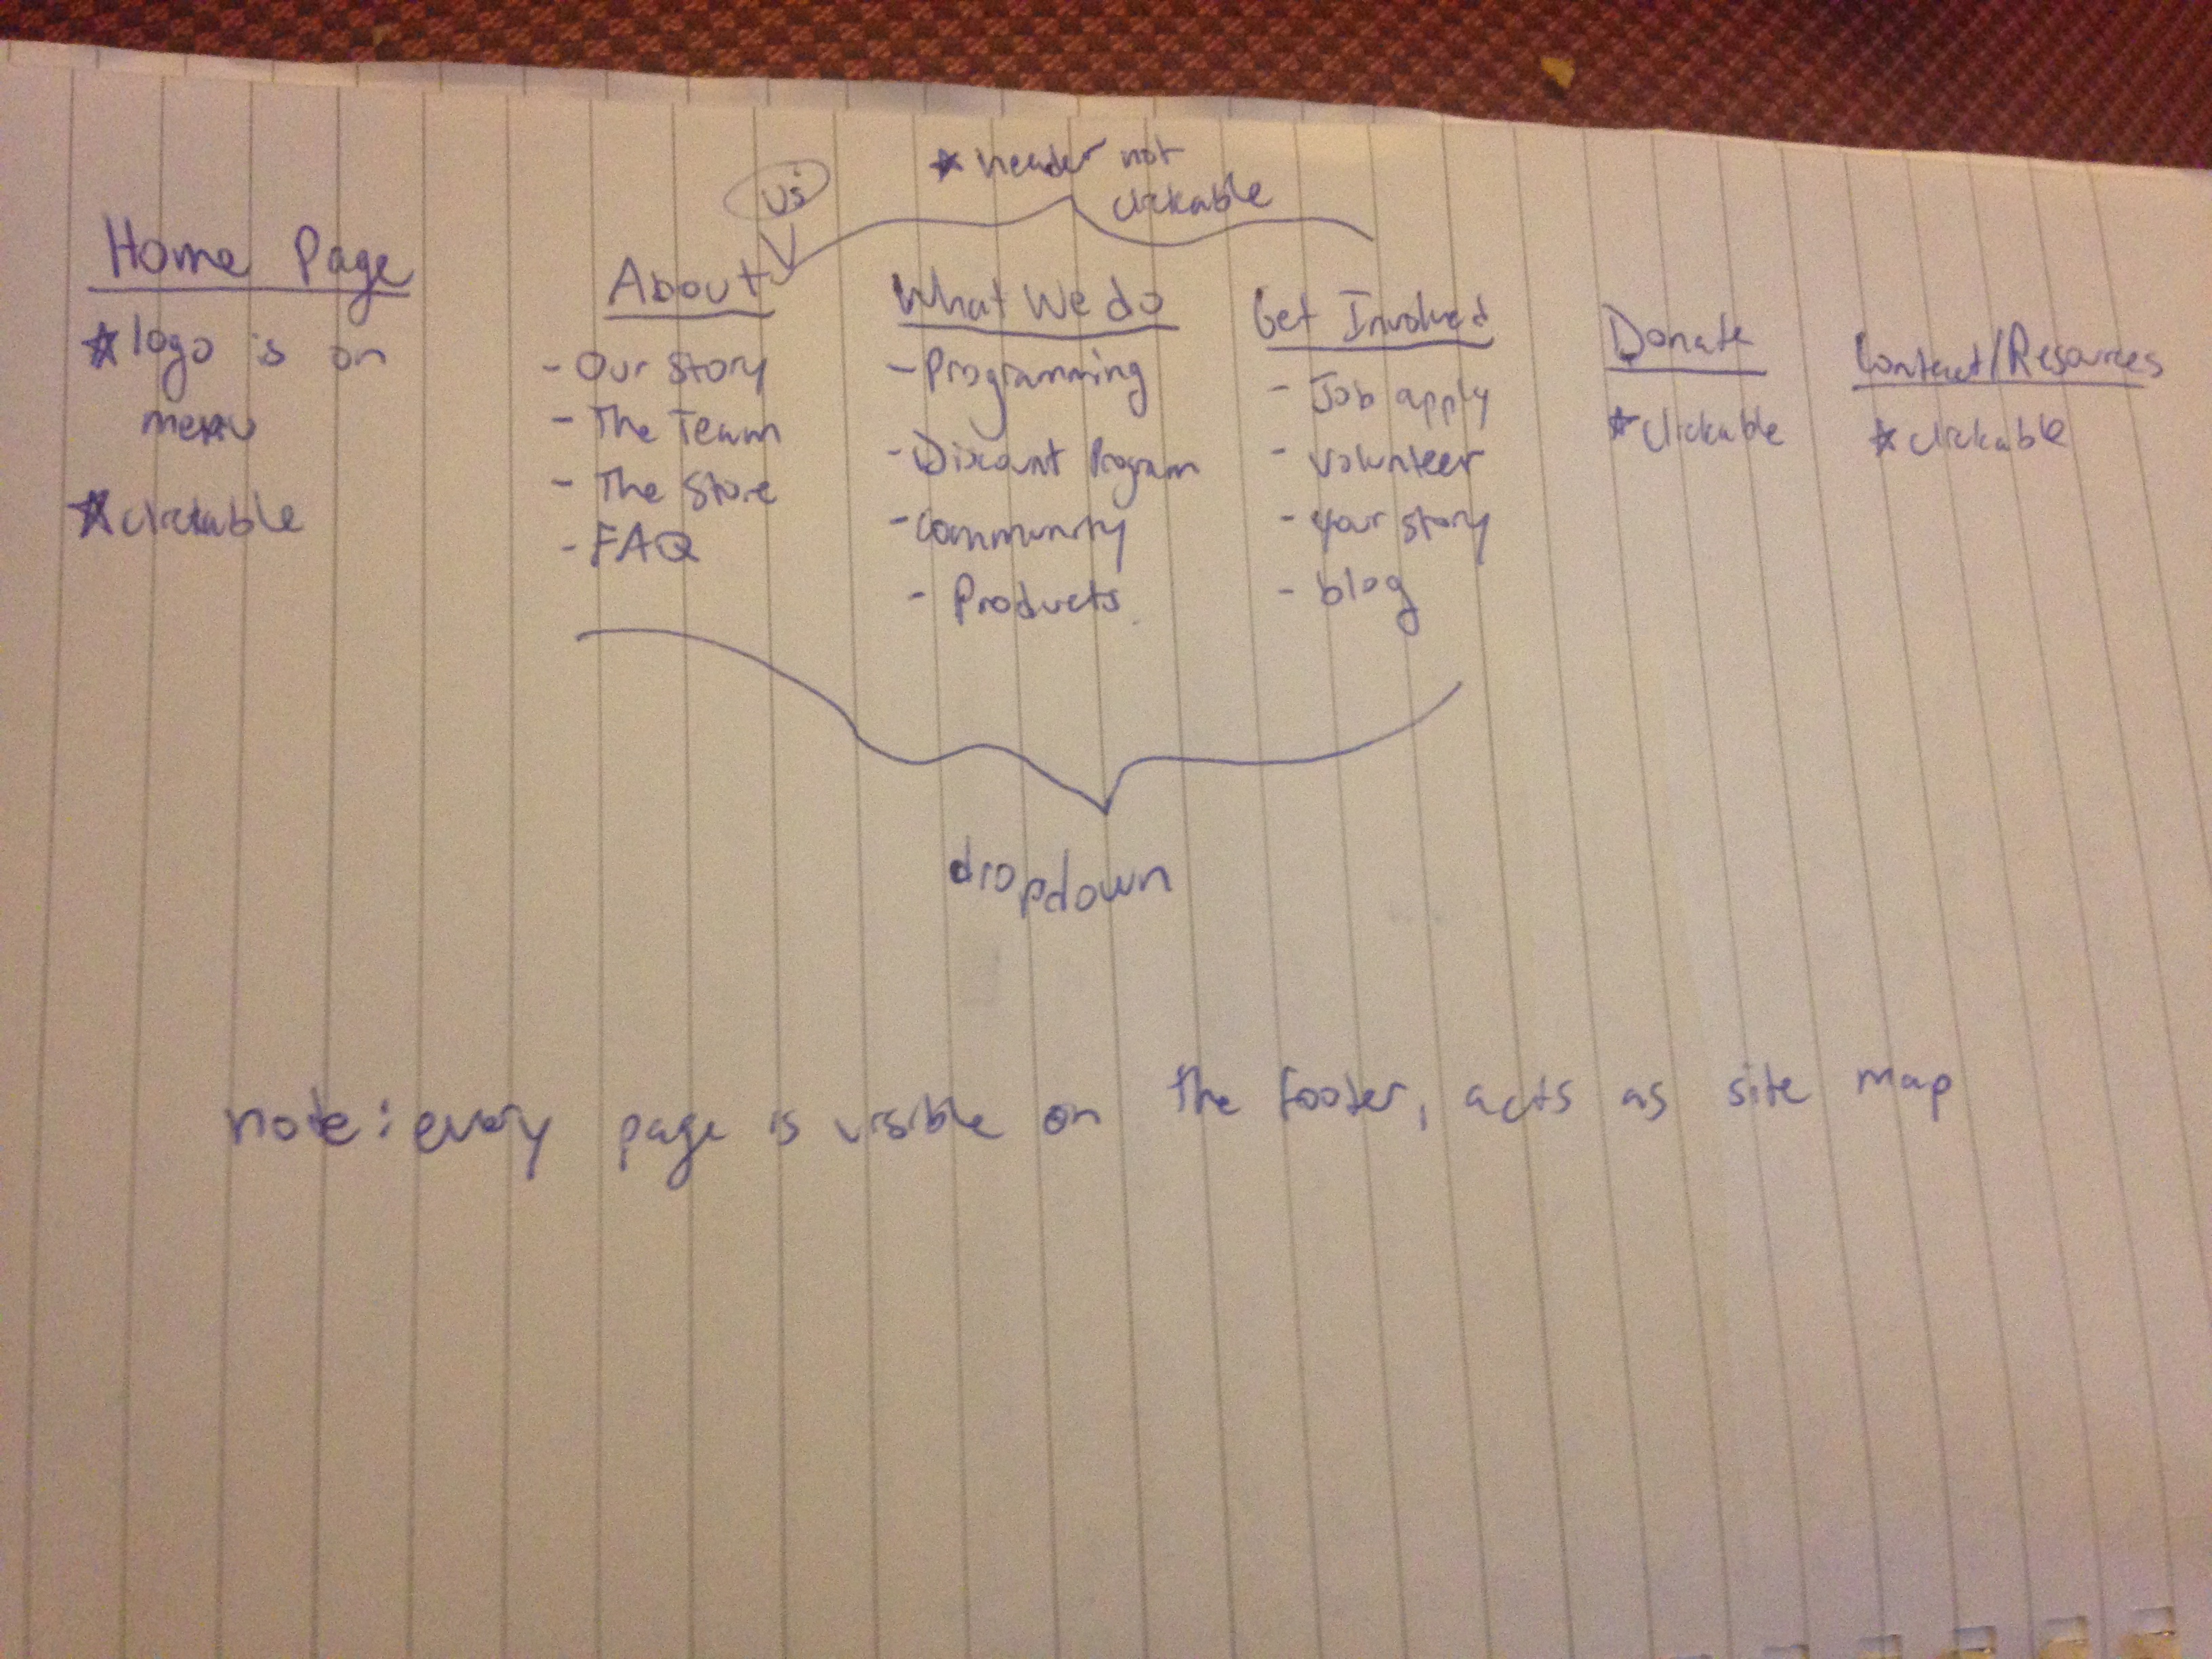 * header not
clickable
us
Home Page
* logo is on
menu
* clickable
About
- Our Story
- The Team
- The Store
- FAQ
What We do
- Programming
- Discount Program
- Community
- Products
Get Involved
- Job apply
- volunteer
- your story
- blog
Donate
* clickable
Contact/Resources
* clickable
dropdown
note: every page is visible on the footer, acts as site map